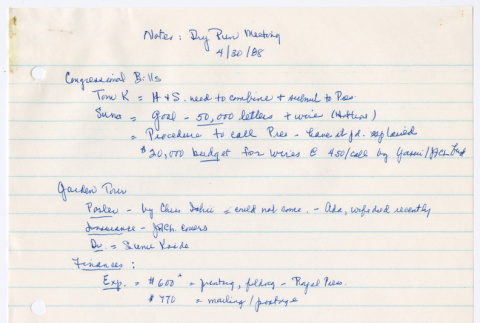 Notes: Day Prem Meeting
4/30/88
Congressional Bills
Tom K = H & S. need to combine & submit to Pres.
Suma = Goal - 50,000 letters & wires (Hotline)
= Procedure to call Pres - have it explained
$20,000 budget for wires @ 4.50/call by
Garden Tour
Poster - by Chris = could not come. - Ada, wife died recently
Insurance - JACL covers
Finances:
Exp. = $600 = printing, folding - Royal Press.
$770 = mailing/postage